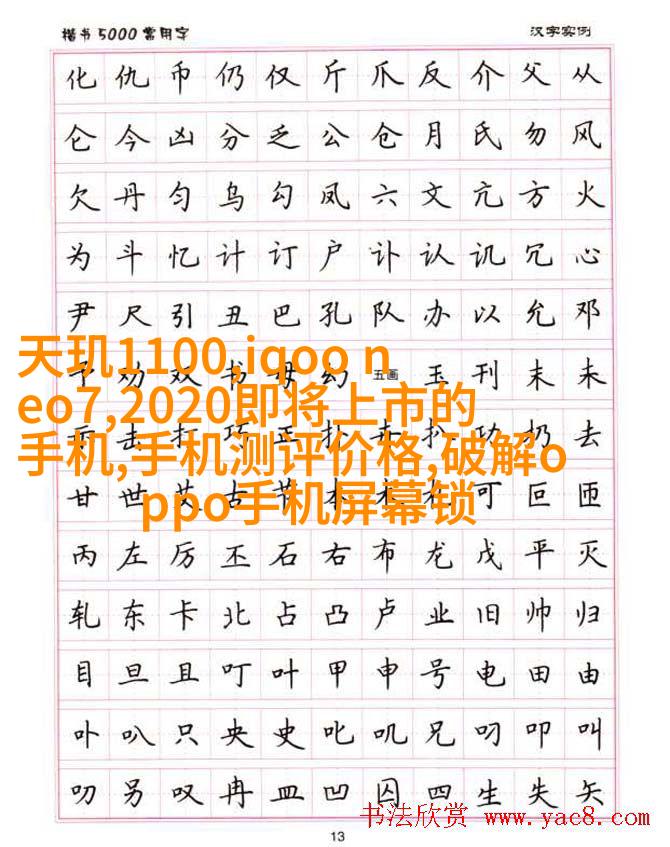 楷书5000常用字 汉字实例
化 仇 币 仍 仅 斤 爪 反 介 父 从
仑 今 凶 分 乏 公 仓 月 氏 勿 风
欠 丹 匀 乌 勾 凤 六 文 亢 方 火
为 斗 忆 计 订 户 讣 认 讥 冗 心
尹 尺 引 丑 巴 孔 队 办 以 允 邓
天玑1100,iqoo n
eo7,2020即将上市的
手机,手机测评价格,破解o
ppo手机屏幕锁
予 劝 双 书 母 幻 五画 玉 刊 末 未
击 打 巧 正 扑 扒 功 扔 去
甘 世 艾 古 节 本 可 叵 匝
丙 左 厉 丕 石 右 布 龙 戊 平 灭
轧 东 卡 北 占 凸 卢 业 旧 帅 归
目 旦 且 叮 叶 甲 申 号 电 田 由
卟 叭 只 央 史 叱 叽 兄 叼 叩 叫
叻 另 叹 冉 皿 凹 囚 四 生 失 矢
书法欣赏 www.yac8.com
13